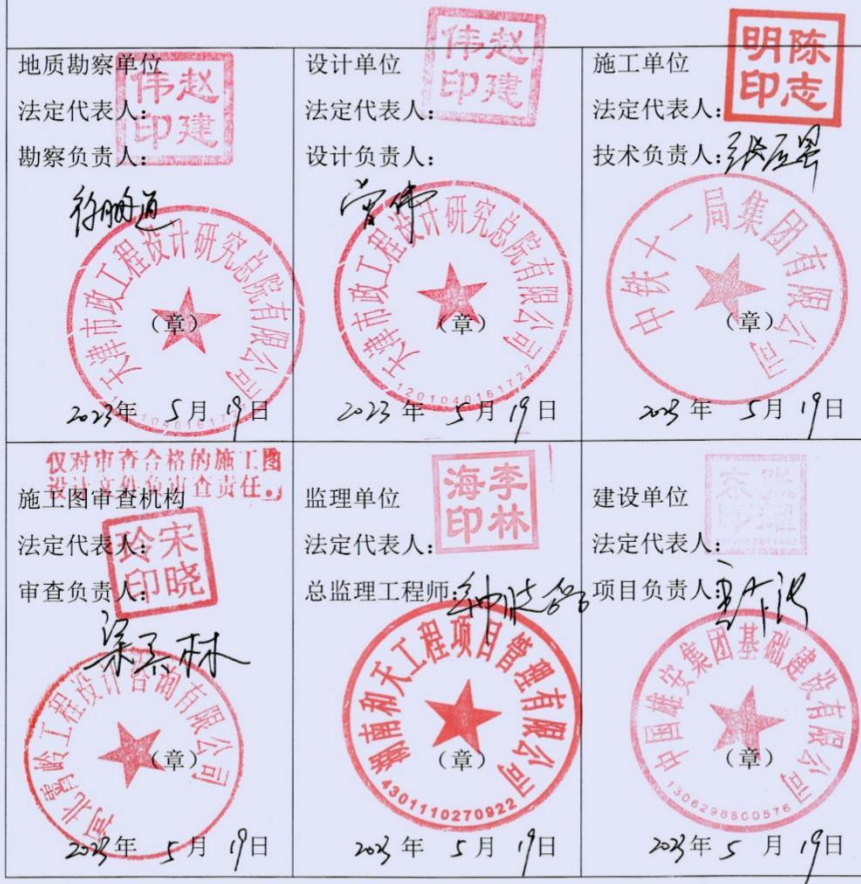 地质勘察单位
法定代表人：
赵建伟印
勘察负责人：
徐鹏通
天津市政工程设计研究总院有限公司
（章）
2023年 5月 19日
设计单位
法定代表人：
赵建伟印
设计负责人：
天津市政工程设计研究总院有限公司
（章）
1201040161727
2023年 5月 19日
施工单位
法定代表人：
陈志明印
技术负责人：
中铁十一局集团有限公司
（章）
2023年 5月 19日
仅对审查合格的施工图
设计文件负审查责任。
施工图审查机构
法定代表人：
宋晓玲印
审查负责人：
工程设计咨询有限公司
（章）
2023年 5月 19日
监理单位
法定代表人：
李林海印
总监理工程师：
湖南和天工程项目管理有限公司
（章）
4301110270922
2023年 5月 19日
建设单位
法定代表人：
项目负责人：
中国雄安集团基础建设有限公司
（章）
2023年 5月 19日